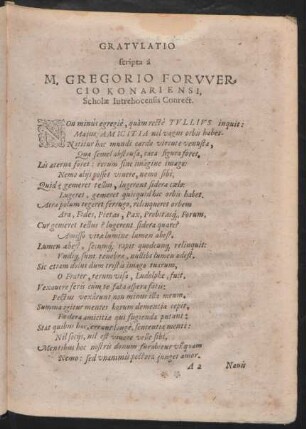 GRATVLATIO
scripta à
M. GREGORIO FORVVER-
CIO KONARIENSI,
Scholæ Intrehocensis Conrect.
NOn minus egregiè, quàm rectè TVLLIVS inquit:
Maius AMICITIA nil vagus orbis habet.
Nititur hæc mundi carde virente venusta,
Qua semel abstensa, rara figura foret.
Lis æterna foret: rerum sine imagine imago:
Nemo alijs posset vivere, nemo sibi;
Quid? gemeret tellus, lugerent sidera cœli:
Lugeret, gemeret quicquid hic orbis habet.
Atra polum tegeret ferrugo, relinqueret orbem
Ara, Fides, Pietas, Pax, Probitasq, Forum.
Cur gemeret tellus? lugerent sidera quare?
Amissæ vitæ lumine lumen abest.
Lumen abest, secumq, rapit quodcunq relinquit:
Vndiq sunt tenebræ, nullibi lumen adest.
Sic etiam dulci dum tristia imago tuarum,
O Frater, rerum visa, Ludolphe, fuit,
Vexavere feris cum te fata aspera fatis;
Pectus vexârunt non minus illa meum.
Summa igitur mentes horum dementia cepit,
Fœdera amicitiæ qui fugienda putant;
Stat quibus hæc, errant longè, sententia menti:
Nil scijs, nil est vivere velle sibi.
Mentibus hæc nostris donum furabitur usquam
Nemo: sed unanimis pectora junget amor.
A 2 Navis